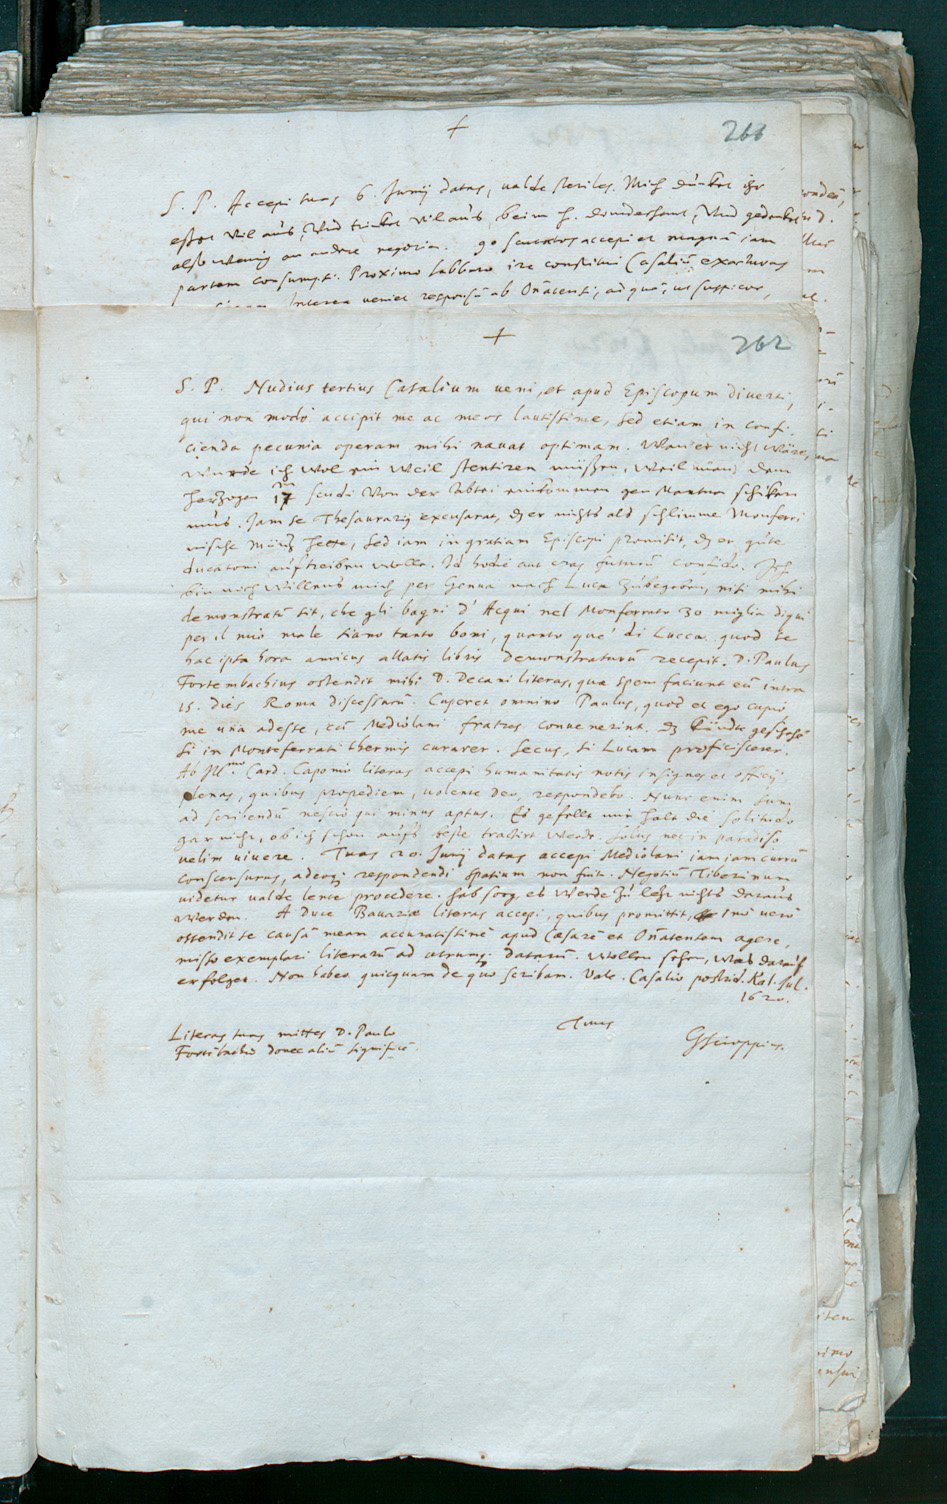 +
266
S. P. Accepi tuas 6. Junij datas, valde steriles. Mich dünket ihr
esset vil aus, Und trinket vil aus, beim h. Und gedenket
also wenig an andere negocia. 90 scutatos accepi et magnã iam
partem consumpsi. Proximo sabbato ire constitui Casaliũ, exacturus
Interea veniet respõsũ ab Oñatensi, ut suspicor,
+
262
S. P. Nudius tertius Casalium veni, et apud Episcopum diverti,
qui non modo accipit me ac meos lautissime, sed etiam in confi-
cienda pecunia operam mihi navat optimam. Wan er nicht wäre,
wurde ich wol ein weil stentiren müssen, weil man dem
Herzogen 17 m scudi von der Abtei einkommen gen Mantua schiken
mus. Jam se Thesaurarij excusarat, dz er nichts als schlimme Monferri
nische Müntz hette, sed iam in gratiam Episcopi promisit, dz er gute
ducatoni auftreiben wolle. Id hodie aut cras futurũ confido. Ich
bin noch willens mich per Genua nach Luca zubegeben, nisi mihi
demonstratũ sit, che gli bagni d' Acqui nel Monferrato 30 miglia di qui
per il mio male siano tanto boni, quanto que' di Lucca. quod se
hac ipsa hora amicus allatis libris demonstraturũ recepit. D. Paulus
Fortembachius ostendit mihi D. Decani literas, quæ spem faciunt eũ intra
15. dies Roma discessurũ. Cuperet omnino Paulus, quod et ego cupio
me una adesse, cũ Mediolani fratres convenerint. dz kündte geschehẽ
si in Monteferrati thermis curarer. Secus, si Lucam proficiscerer.
Ab Ill.mo Card. Caponio literas accepi humanitatis notis insignes et officij
plenas, quibus propediem, volente Deo, respondebo. Nunc enim sum
ad scribendũ nescio qui minus aptus. Es gefellt mir halt die solitudo
gar nicht, ob ich schon aufs beste tractirt werde. Solus nec in paradiso
velim vivere. Tuas 20. Junij datas accepi Mediolani iam iam currũ
conscensurus, adeoq; respondendi spatium non fuit. Negotiũ Tiberinum
videtur valde lente procedere. hab sorg, es werde zu letzt nichts daraus
werden. A Duce Bavariæ literas accepi, quibus promittit, Imò verò
ostendit se causã meam accuratissimè apud Cæsarẽ et Oñatentem agere,
misso exemplari literarũ ad utrumq; datarũ. Wollen sehen, was darauf
erfolget. Non habeo quicquam de quo scribam. Vale. Casalio postrid. Kal. Jul.
1620.
Tuus
GScioppius.
Literas tuas mittes D. Paulo
Fortẽbachio donec aliũ significẽ.